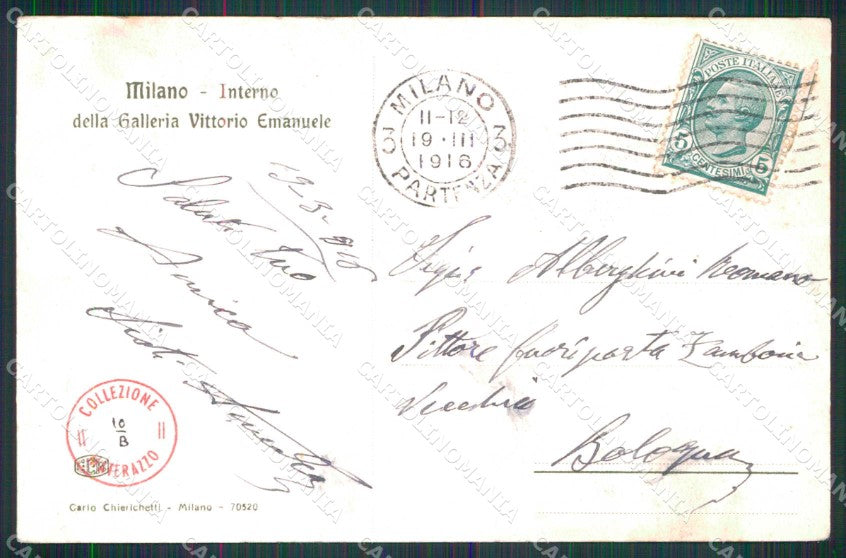 Milano - Interno
della Galleria Vittorio Emanuele
MILANO
11-12
3 19·III 3
1916
PARTENZA
POSTE ITALIANE
5 CENTESIMI 5
Saluti tuo
Amico
Alberghini Romano
Pittore fuori porta Zamboni
Vecchia
Bologna
COLLEZIONE
10
B
Carlo Chierichetti - Milano - 70520
CARTOLINOMANIA